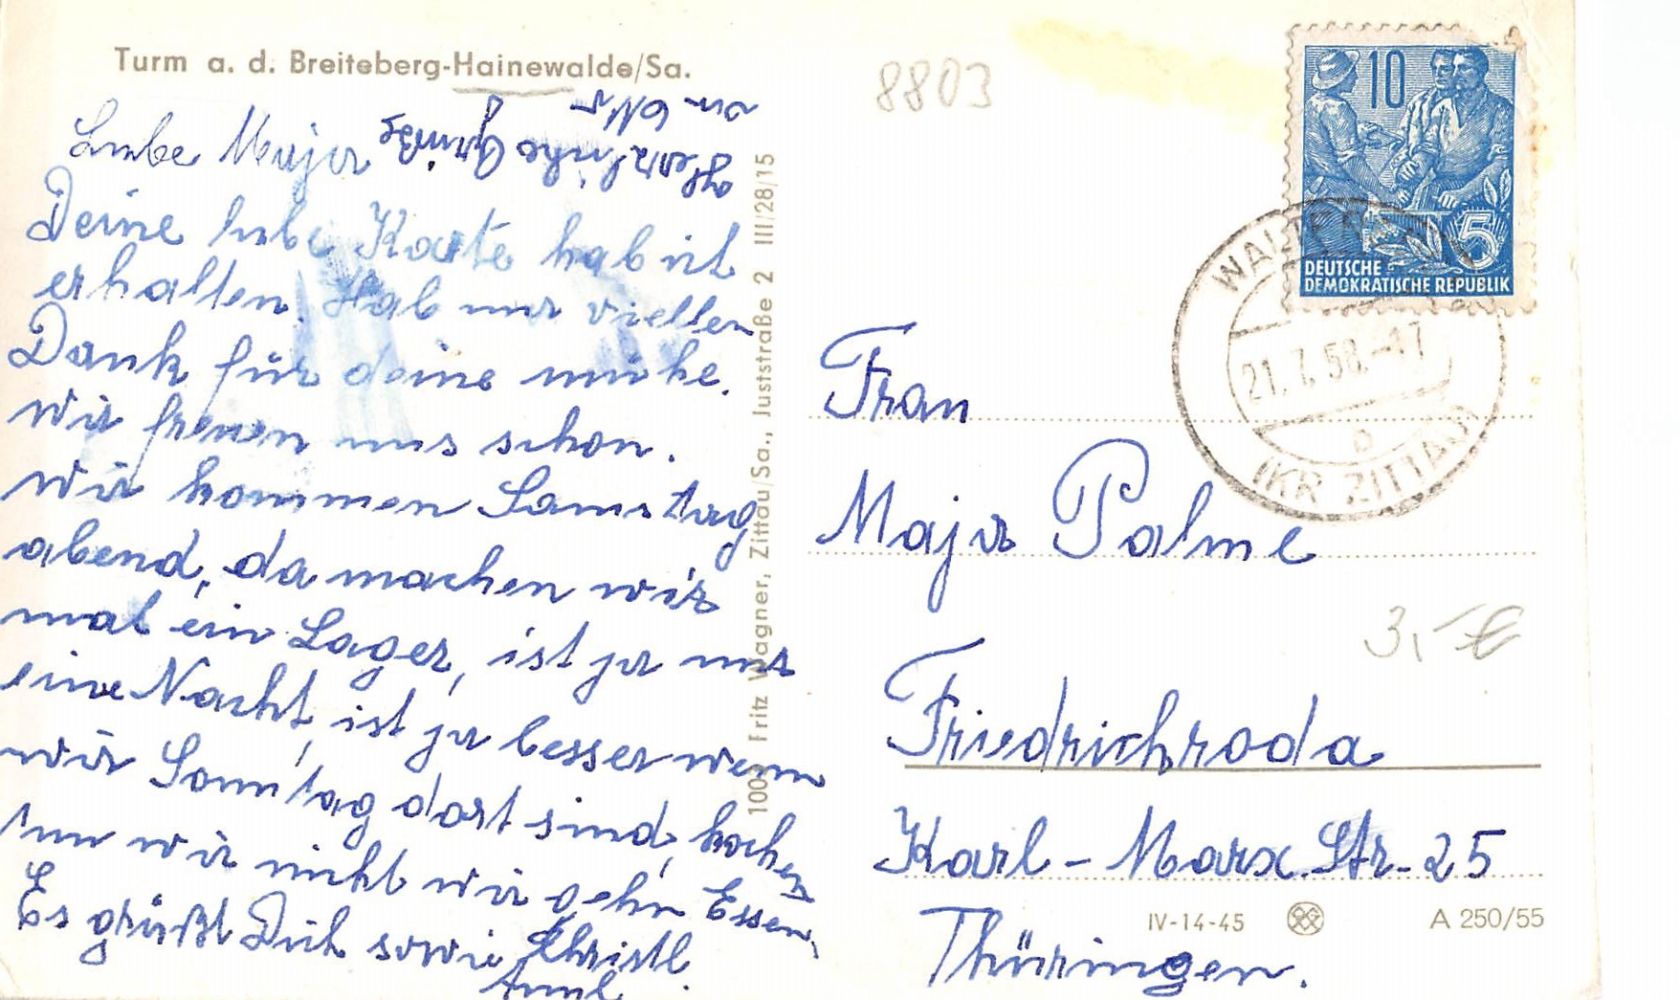 Turm a. d. Breiteberg-Hainewalde/Sa.
8803
Liebe Maja
Herzliche Grüße
Deine liebe Karte hab ich
erhalten. Hab nur viellen
Dank für deine mühe.
Wir freuen uns schon.
Wir kommen Samstag
abend, da machen wir
mal ein Lager, ist ja nur
eine Nacht, ist ja besser wenn
wir Sonntag dort sind, kochen
tun wir nicht wir gehn Essen,
Es grüßt Dich sowie Christl.
1003 Fritz Wagner, Zittau/Sa., Juststraße 2 III/28/15
10
5
DEUTSCHE
DEMOKRATISCHE REPUBLIK
21.7.58.-17
b
(KR ZITTAU)
Frau
Maja Palme
3,- €
Friedrichroda
Karl-Marx.Str. 25
Thüringen.
IV-14-45 A 250/55